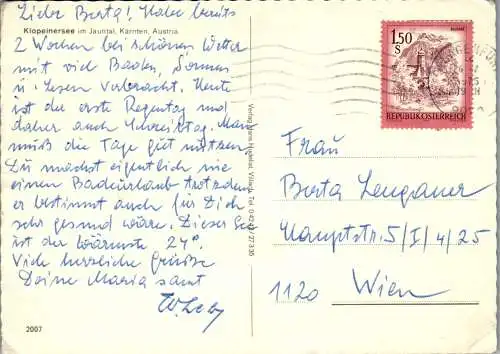 Lieber Berta! Habe bereits
Klopeinersee im Jauntal, Kärnten, Austria
2 Wochen bei schönem Wetter
mit viel Baden, Sonnen
u. Lesen verbracht. Heute
ist der erste Regentag und
daher auch Schreibtag. Man
muß die Tage gut nützen.
Du machst eigentlich nie
einen Badeurlaub trotzdem
er bestimmt auch für Dich
sehr gesund wäre. Dieser See
ist der wärmste 24°.
Viele herzliche Grüsse
Deine Maria samt
2007
Verlag Hans
1.50
S
REPUBLIK ÖSTERREICH
Frau
Berta Lengauer
Hauptstr. 5/I/4/25
1120 Wien